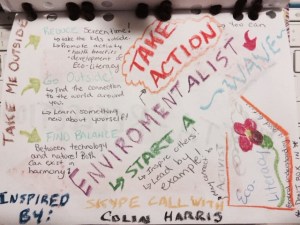 TAKE ME OUTSIDE
REDUCE Screentime!
↳ take the kids inside
↳ Remote activity
- health benefits
- development
Eco-literacy
Go OUTSIDE!
↳ find the connection
to the world around
you.
↳ Learn something
new about yourself!
FIND BALANCE
Between technology
and nature! Both
can exist in
harmony!
TAKE
ACTION
you can
ENVIROMENTALIST
START A
WAVE
↳ Inspire others!
↳ Lead by
example!
Eco-
Literacy
INSPIRED
BY:
SKYPE CALL WITH
COLIN HARRIS